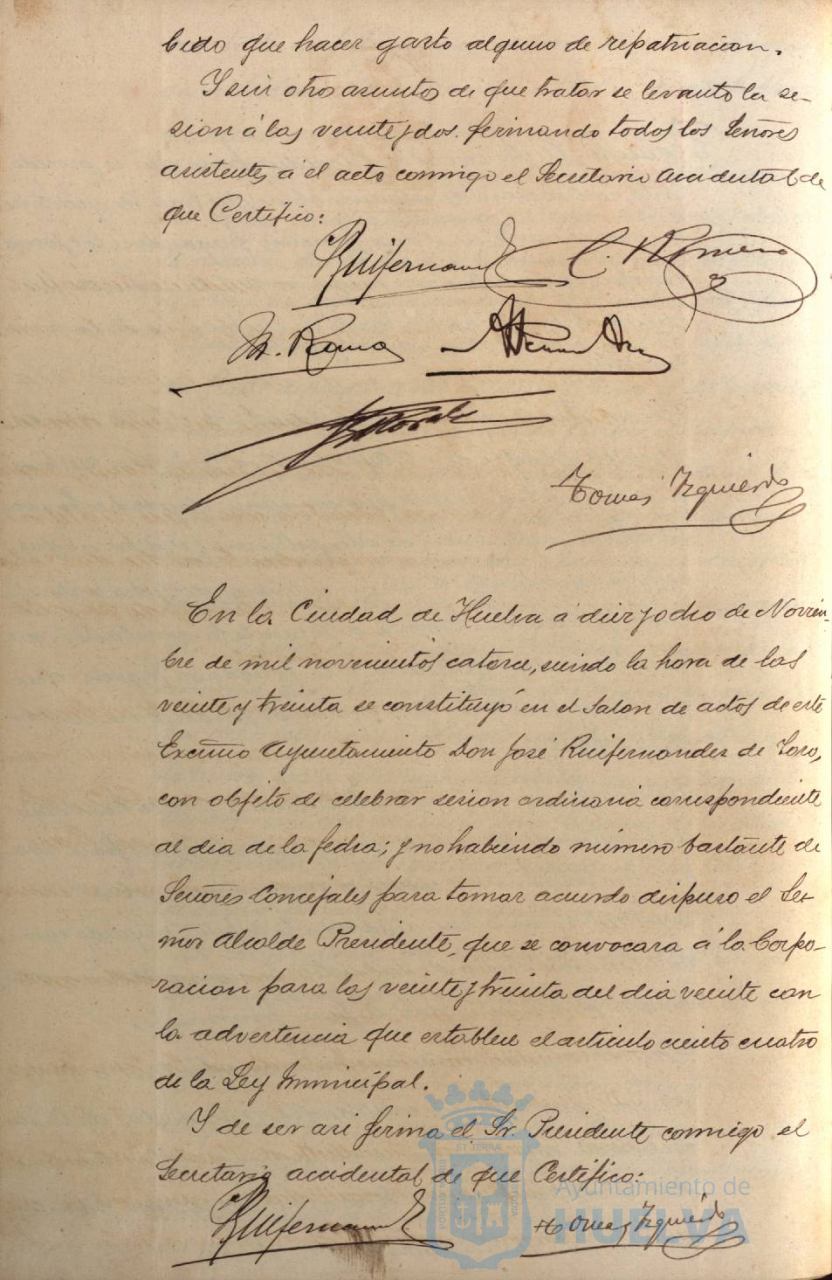 bido que hacer gasto alguno de repatriacion.
Y sin otro asunto de que tratar se levantó la se-
sion á las veinte y dos firmando todos los Señores
asistentes á el acto conmigo el Secretario accidental de
que Certifico:
Ruifernandez C. Romero
M. Rama
Tomas Izquierdo
En la Ciudad de Huelva á diez y ocho de Noviem-
bre de mil novecientos catorce, siendo la hora de las
veinte y treinta se constituyó en el Salon de actos de este
Excmo Ayuntamiento Don José Ruifernandez de Toro,
con objeto de celebrar sesion ordinaria correspondiente
al dia de la fecha; y no habiendo número bastante de
Señores Concejales para tomar acuerdo dispuso el Se-
ñor Alcalde Presidente, que se convocara á la Corpo-
racion para las veinte y treinta del dia veinte con
la advertencia que establece el articulo ciento cuatro
de la Ley Municipal.
Y de ser asi firma el Sr. Presidente conmigo el
Secretario accidental de que Certifico:
Ruifernandez Tomas Izquierdo
Ayuntamiento de
HUELVA